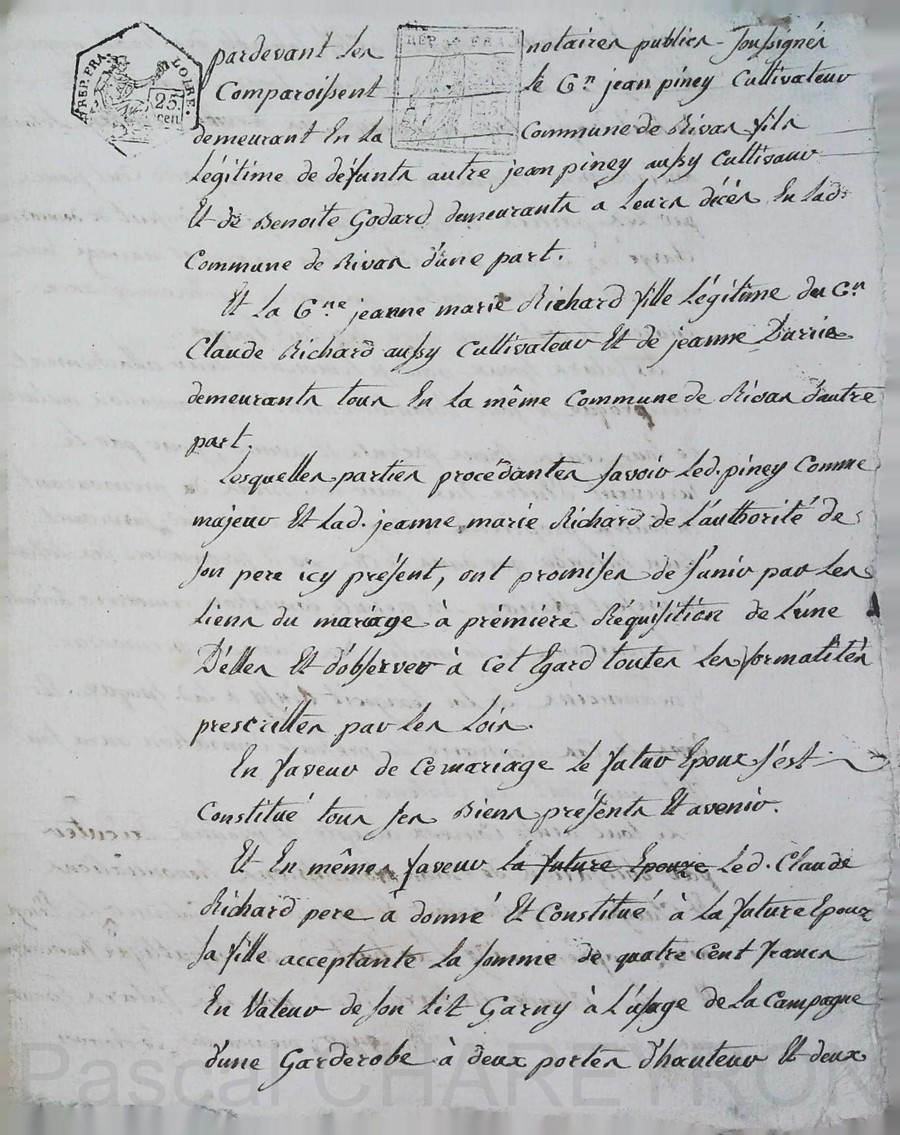 REP. FRA. LOIRE.
25.
cen
REP. FRA
25
pardevant Les notaires publics Soussignés
Comparoissent le C.en jean piney Cultivateur
demeurant En La Commune de Rivas fils
Légitime de défunts autre jean piney aussy Cultivateur
Et de Benoite Godard demeurants a Leurs décés En Lad:
Commune de Rivas d'une part.
Et La C.ne jeanne marie Richard fille Légitime du C.en
Claude Richard aussy Cultivateur Et de jeanne
demeurants tous En La même Commune de Rivas d'autre
part.
Lesquelles parties procédantes Savoir Led. piney Comme
majeur Et Lad. jeanne marie Richard de L'authorité de
Son pere icy présent, ont promises de S'unir par Les
Liens du mariage à prémière Réquisition de L'une
D'elles Et d'observer à Cet Egard toutes Les formalités
prescrittes par Les Loix.
En faveur de Ce mariage Le futur Epoux S'est
Constitué tous Ses Biens présents Et avenir.
Et En même faveur la future Epouze Led. Claude
Richard pere à donné Et Constitué à La future Epouze
Sa fille acceptante La Somme de quatre Cent francs
En Valeur de Son Lit Garny à L'usage de La Campagne
d'une Garderobe à deux portes d'hauteur Et deux
Pascal CHAREYRON